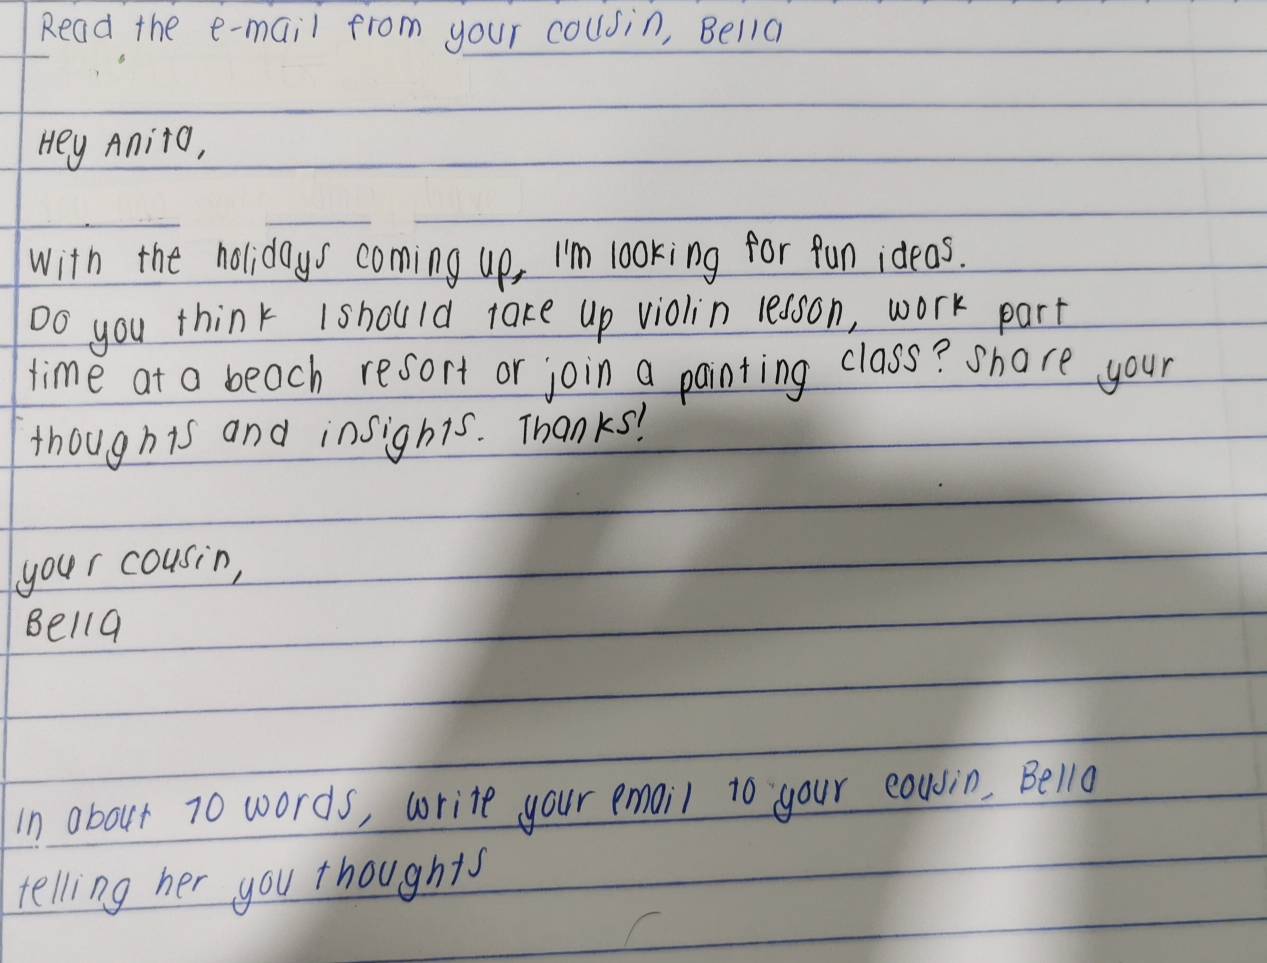 Read the e-mail from your cousin, Bella
Hey Anita,
With the holidays coming up, I'm looking for fun ideas.
Do you think I should take up violin lesson, work part
time at a beach resort or join a painting class? Share your
thoughts and insights. Thanks!
your cousin,
Bella
In about 70 words, write your email to your cousin, Bella
telling her you thoughts